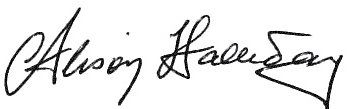 Alison Halliday